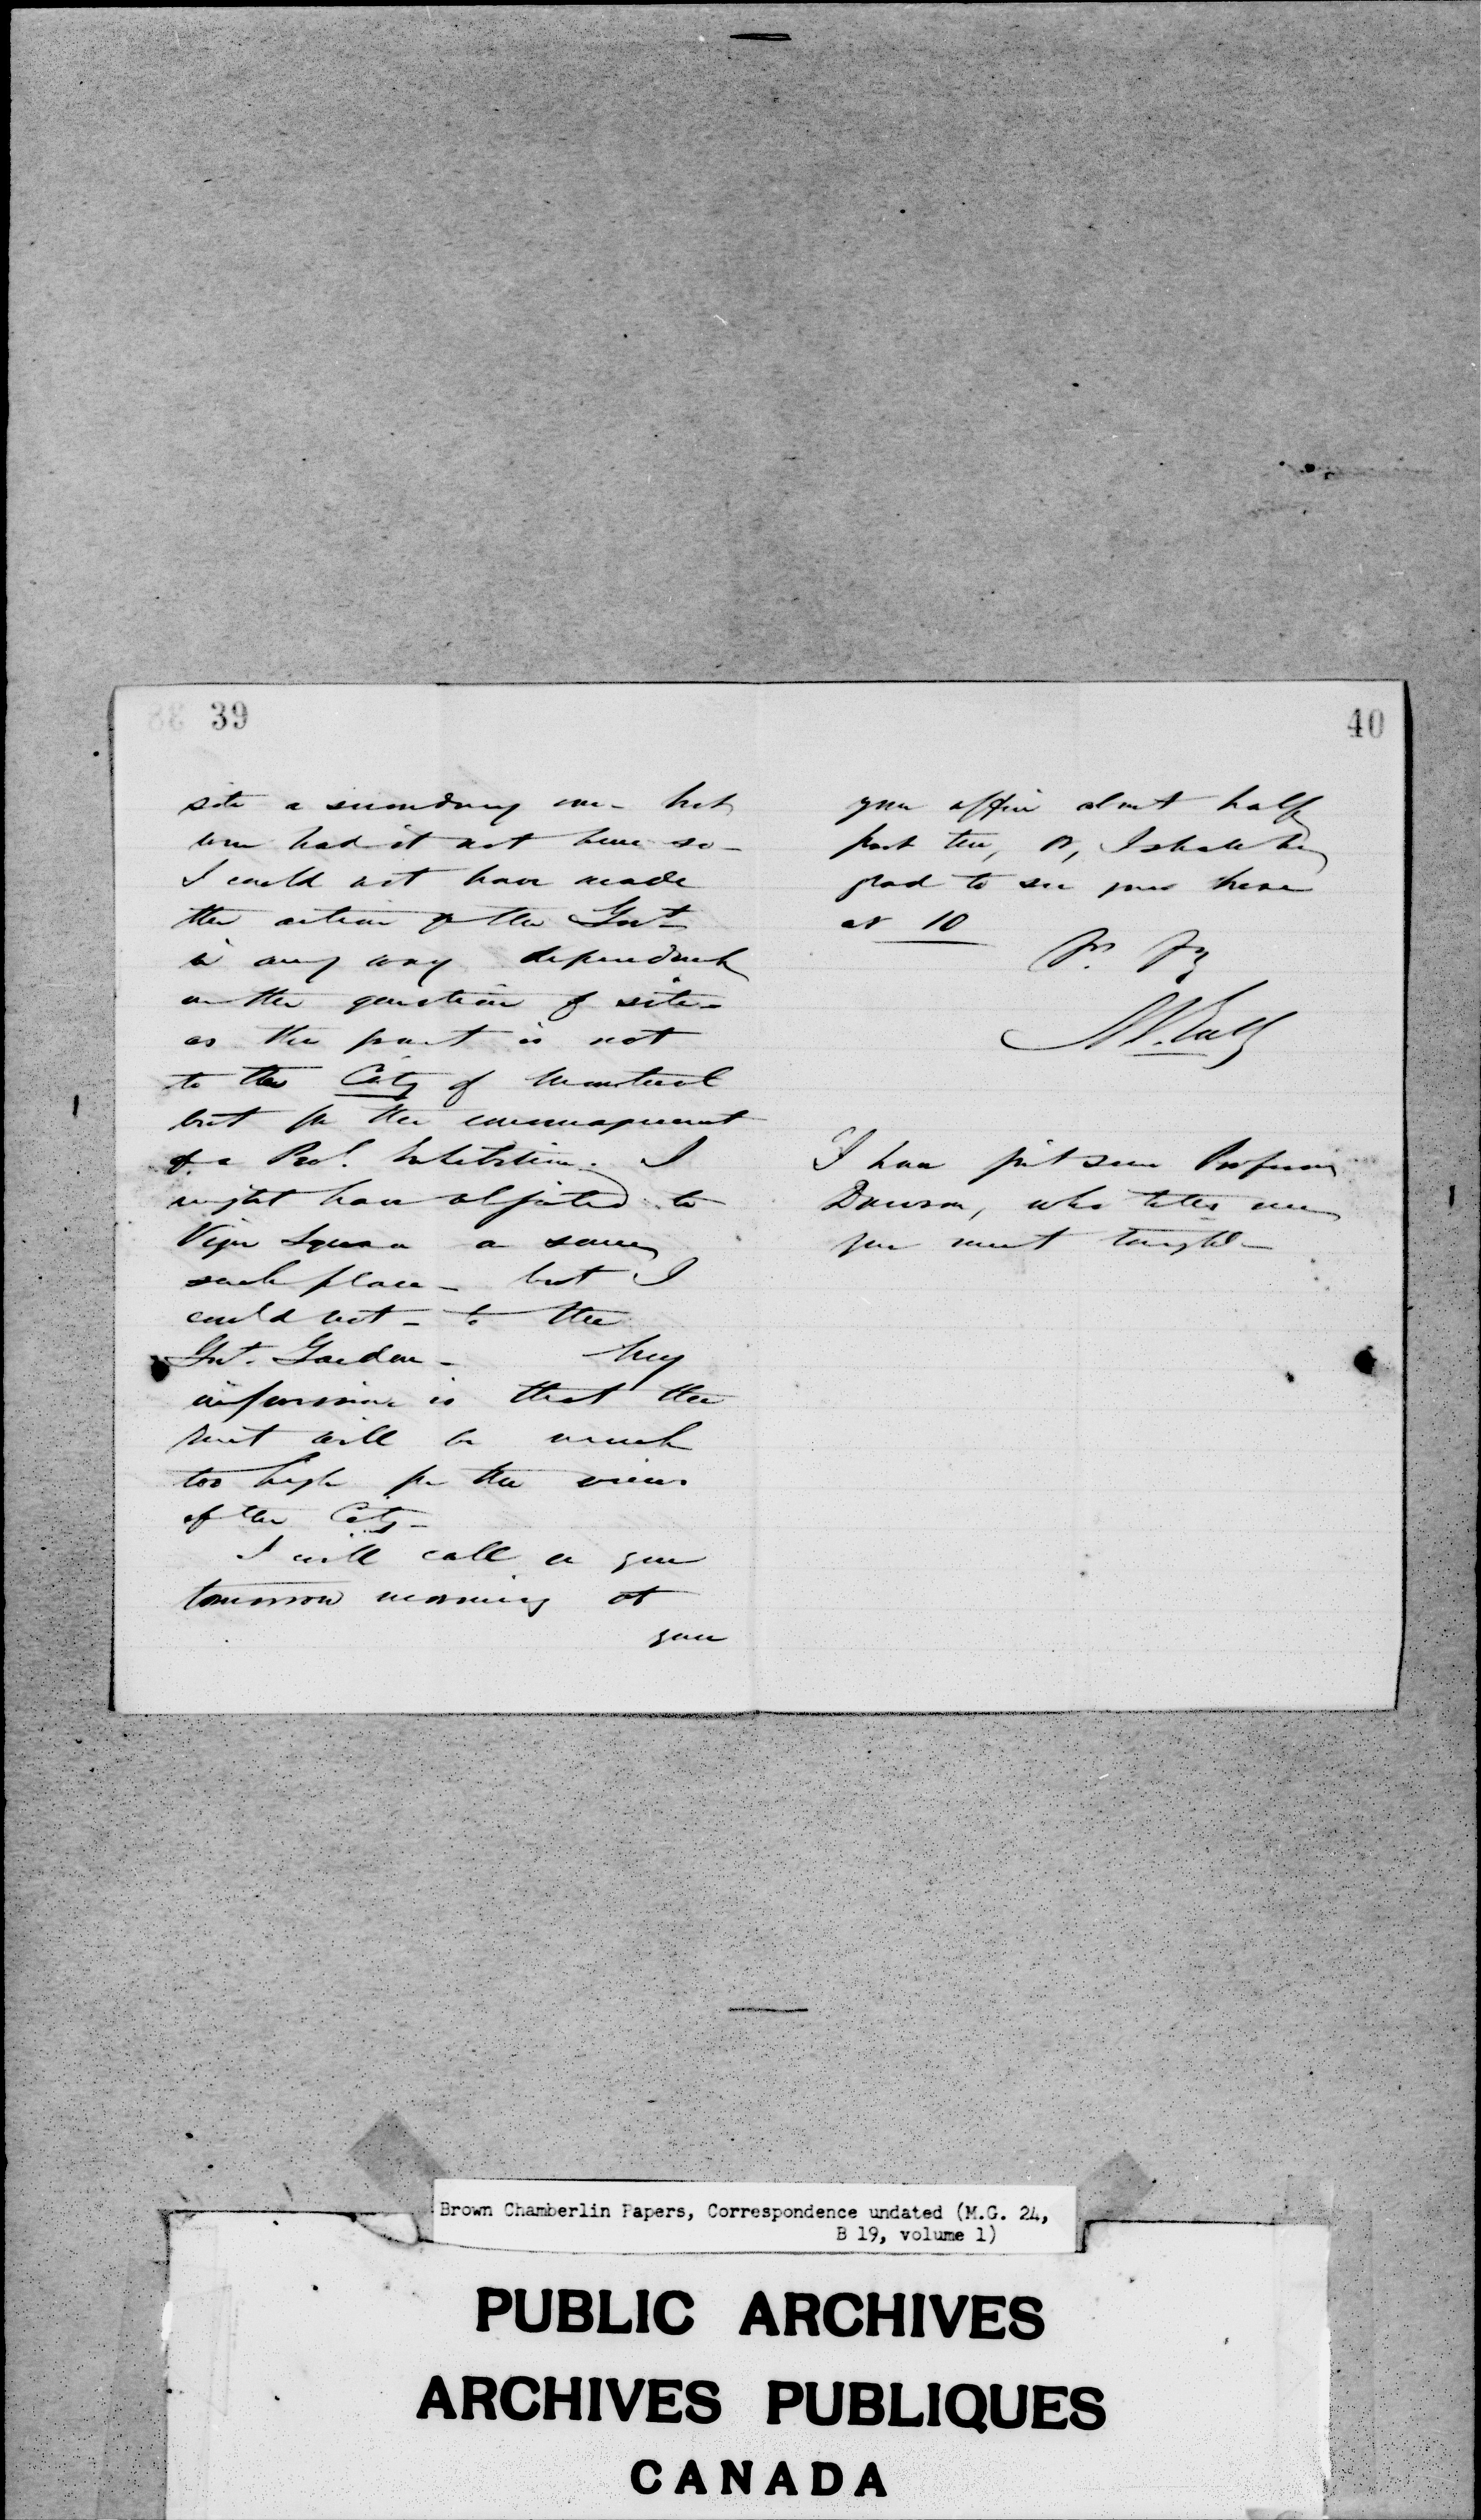 39
site a secondary one - but
even had it not been so -
I could not have made
the action of the Govt
in any way dependent
on the question of site -
as the grant is not
to the City of Montreal
but for the encouragement
of a Prov. Exhibition. I
might have objected to
Viger Square or some
such place - but I
could not - to the
Govt. Garden - My
impression is that the
rent will be much
too high for the views
of the City -
I will call on you
tomorrow morning at
your
40
your office about half
past ten, or, I shall be
glad to see you here
at 10
A. T. Galt
I have just seen Professor
Dawson, who tells me
you meet tonight -
Brown Chamberlin Papers, Correspondence undated (M.G. 24,
B 19, volume 1)
PUBLIC ARCHIVES
ARCHIVES PUBLIQUES
CANADA